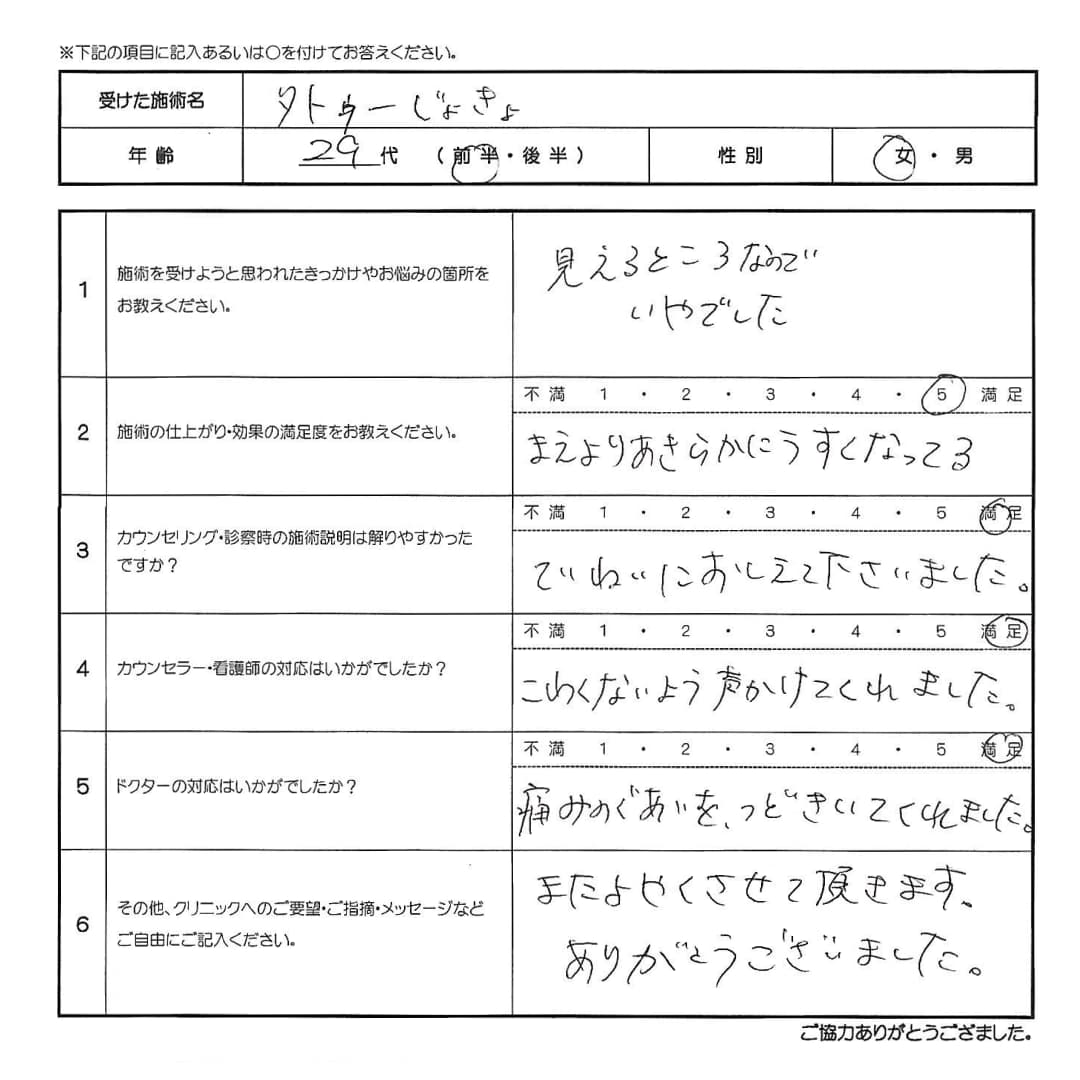 ※下記の項目に記入あるいは〇を付けてお答えください。
受けた施術名 タトゥーじょきょ
年齢 29代 (前半・後半) 性別 女・男
1 施術を受けようと思われたきっかけやお悩みの箇所を
お教えください。
見えるところなので
いやでした
2 施術の仕上がり・効果の満足度をお教えください。
不満 1・2・3・4・5 満足
まえよりあきらかにうすくなってる
3 カウンセリング・診察時の施術説明は解りやすかった
ですか?
不満 1・2・3・4・5 満足
ていねいにおしえて下さいました。
4 カウンセラー・看護師の対応はいかがでしたか?
不満 1・2・3・4・5 満足
こわくないよう声かけてくれました。
5 ドクターの対応はいかがでしたか?
不満 1・2・3・4・5 満足
痛みのぐあいを、つどきいてくれました。
6 その他、クリニックへのご要望・ご指摘・メッセージなど
ご自由にご記入ください。
またよやくさせて頂きます。
ありがとうございました。
ご協力ありがとうござました。